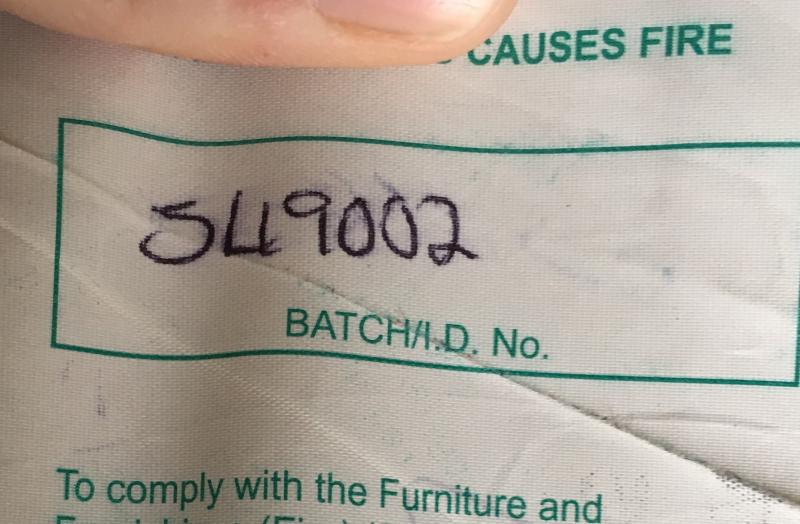 CAUSES FIRE
549002
BATCH/I.D. No.
To comply with the Furniture and